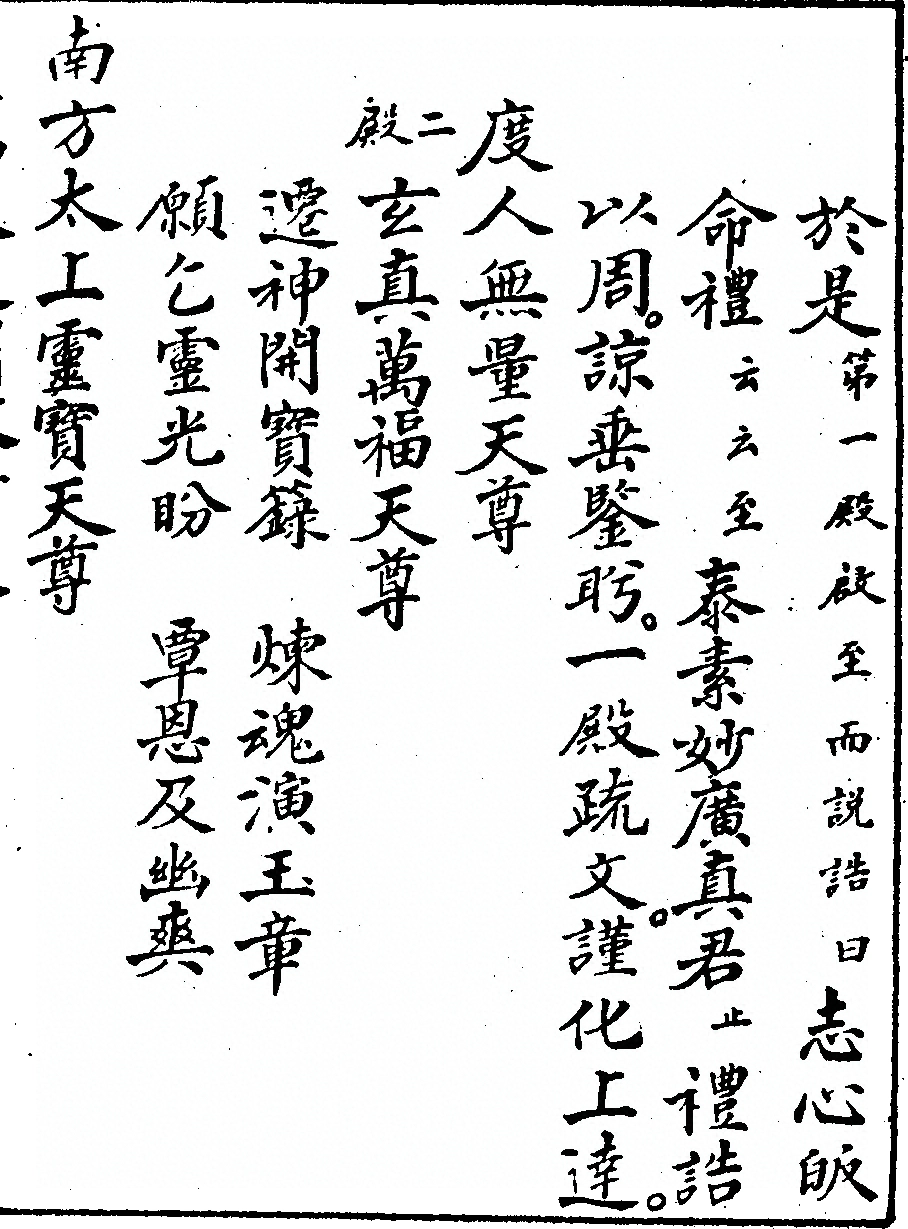 於是第一殿啟至而説誥曰志心皈
命禮云云至泰素妙廣真君止禮誥
以周。諒垂鑒盻。一殿疏文。謹化上達。
度人無量天尊
二殿玄真萬福天尊
遷神開寶籙　煉魂演玉章
願乞靈光盼　覃恩及幽爽
南方太上靈寶天尊